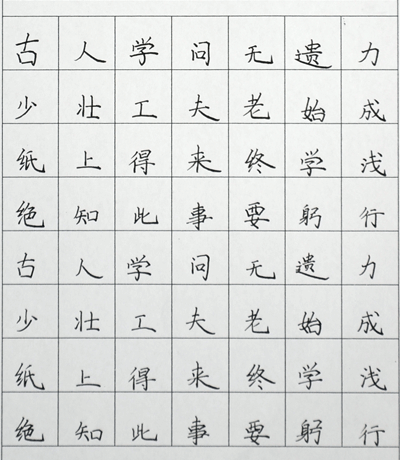 古人学问无遗力
少壮工夫老始成
纸上得来终学浅
绝知此事要躬行
古人学问无遗力
少壮工夫老始成
纸上得来终学浅
绝知此事要躬行